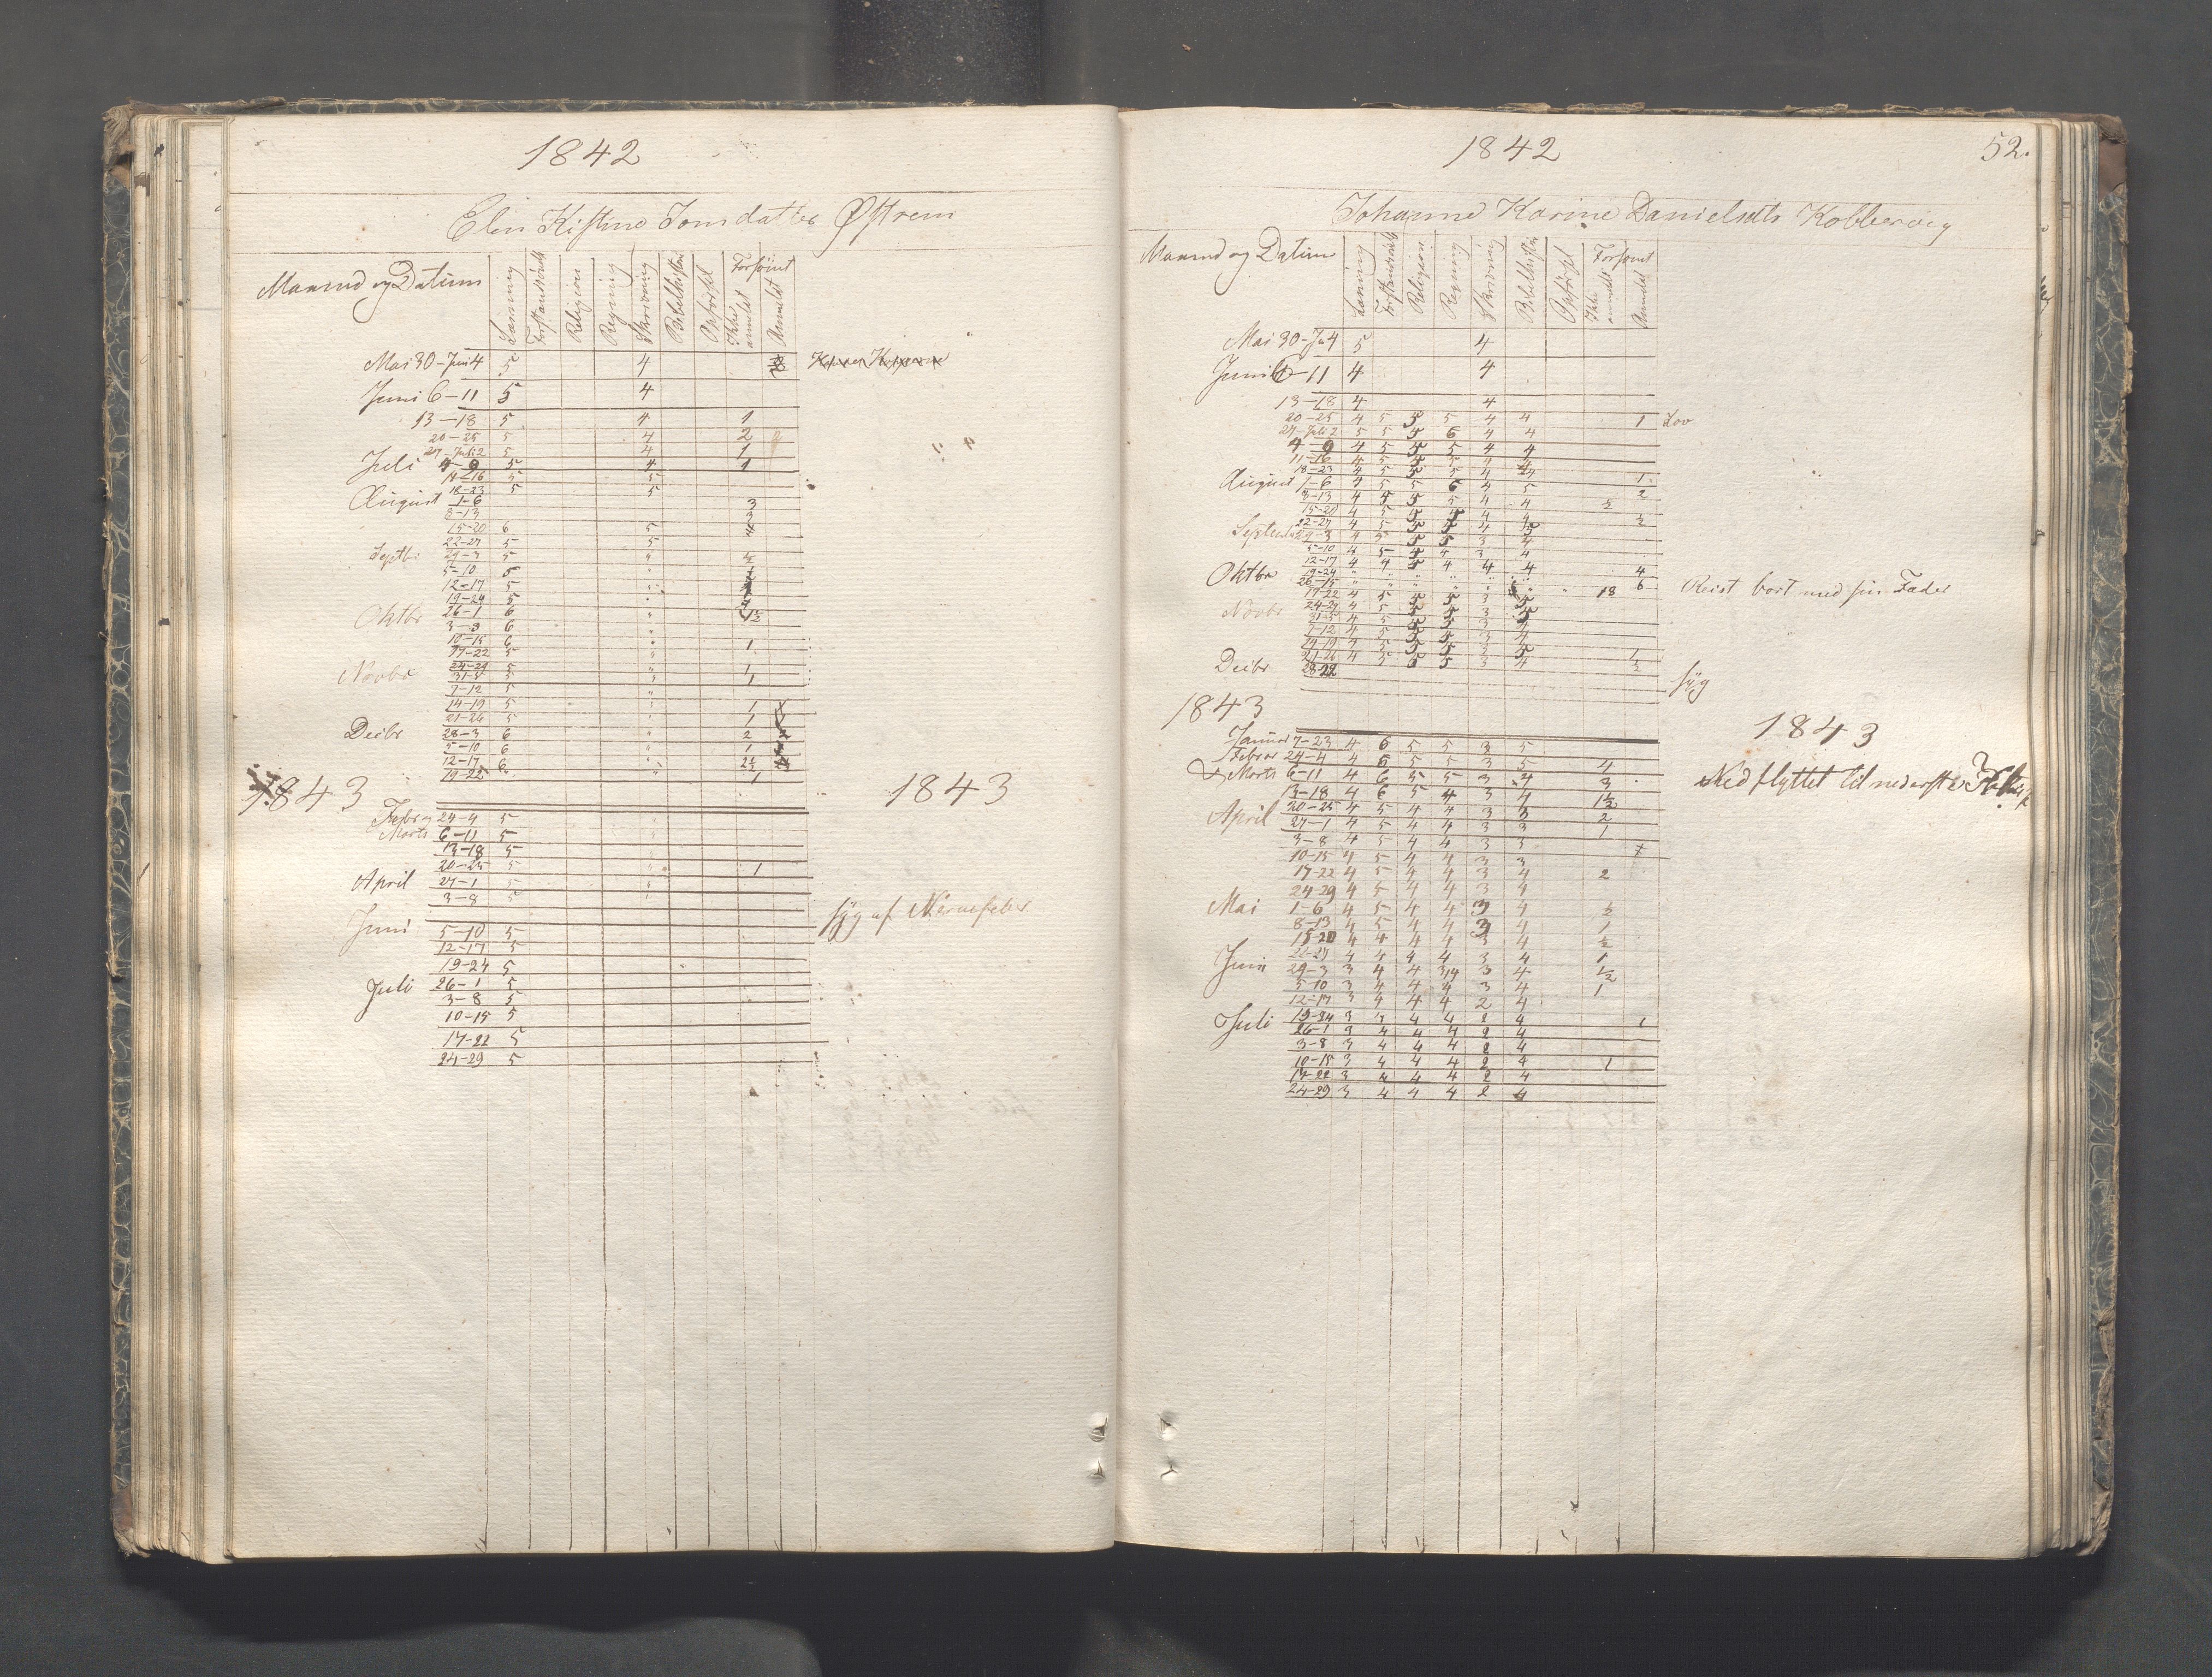 1842
Elen Kistine Jonsdatter Østrem
Maaned og Datum Læsning Forstandsøvels Religion Regning Skrivning Bibelhistorie Opførsel Forsømt
Ikke anmeldt Anmeldt
Mai 30-Juni 4 5 4
Juni 6-11 5 4
13-18 5 4 1
20-25 5 4 2
27-Juli 2 5 4 1
Juli 4-9 5 4 1
11-16 5 5
18-23 5 5
August 1-6 3
8-13 3
15-20 6 5 4
22-27 5 5
Septbr 29-3 5 "
5-10 5 "
12-17 5 "
19-24 5 "
Oktbr 26-1 6 " 1½
3-8 6 "
10-15 6 " 1
17-22 5 "
24-29 5 " 1
Novbr 31-5 5 " 1
7-12 5 "
14-19 5 " 1
21-26 5 " 1
Decbr 28-3 6 " 2
5-10 6 " 1
12-17 6 " 2½
19-22 6 " 1
1843 1843
Februar 24-4 5
Marts 6-11 5
13-18 5
20-25 5 " 1
April 27-1 5 "
3-8 5 "
syg af Nervefeber
Juni 5-10 5
12-17 5
19-24 5
Juli 26-1 5
3-8 5
10-15 5
17-22 5
24-29 5
1842 52.
Johanne Karine Danielsdtr Kobbervig
Maaned og Datum Læsning Forstandsøvels Religion Regning Skrivning Bibelhistorie Opførsel Forsømt
Ikke anmeldt Anmeldt
Mai 30-Ju 4 5 4
Juni 6-11 4 4
13-18 4 4
20-25 4 5 5 5 4 4 1 Lov
27-Juli 2 5 5 5 6 4 4
4-9 4 5 5 5 4 4
11-16 4 5 5 5 4 4
18-23 4 5 5 5 4 4 1
August 1-6 4 5 5 6 4 5 2
8-13 4 5 5 5 4 4 ½
15-20 4 5 5 4 4 ½
22-27 4 5 5 4
Septembr 29-3 4 5 5 5 3 4
5-10 4 5 5 4 3 4
12-17 4 4 5 4 4 4 4
19-24 " " " " " " 6
Oktbr 26-15 " " " " " " " 18 Reist bort med sin Fader
17-22 4 5 5 5 3 5
Novbr 24-29 4 5 5 5 3 5
31-5 4 5 5 5 3
7-12 4 5 5 5 3 4
14-19 4 5 5 5 3 5 1
21-26 4 5 5 5 3 4 ½
Decbr 28-22
syg
1843 1843
Januar 7-23 4 6 5 5 3 5
Februar 24-4 4 6 5 5 3 5 4
Marts 6-11 4 6 5 5 3 4 3 Nedflyttet til nederste
13-18 4 6 5 4 3 4 1½
20-25 4 5 4 4 3 3 2
April 27-1 4 5 4 4 3 3 1
3-8 4 5 4 4 3 3
10-15 4 5 4 4 3 3
17-22 4 5 4 4 3 4 2
24-29 4 5 4 4 3 4
Mai 1-6 4 5 4 4 3 4 ½
8-13 4 5 4 4 3 4 1
15-20 4 4 4 4 3 4 ½
22-27 4 4 4 4 3 4 1
Juni 29-3 3 4 4 3/4 3 4 ½
5-10 3 4 4 4 3 4 1
12-17 3 4 4 4 2 4
19-24 3 3 4 4 2 4 1
Juli 26-1 3 4 4 4 2 4
3-8 3 4 4 4 2 4
10-15 3 4 4 4 2 4 1
17-22 3 4 4 4 2 4
24-29 3 4 4 4 2 4